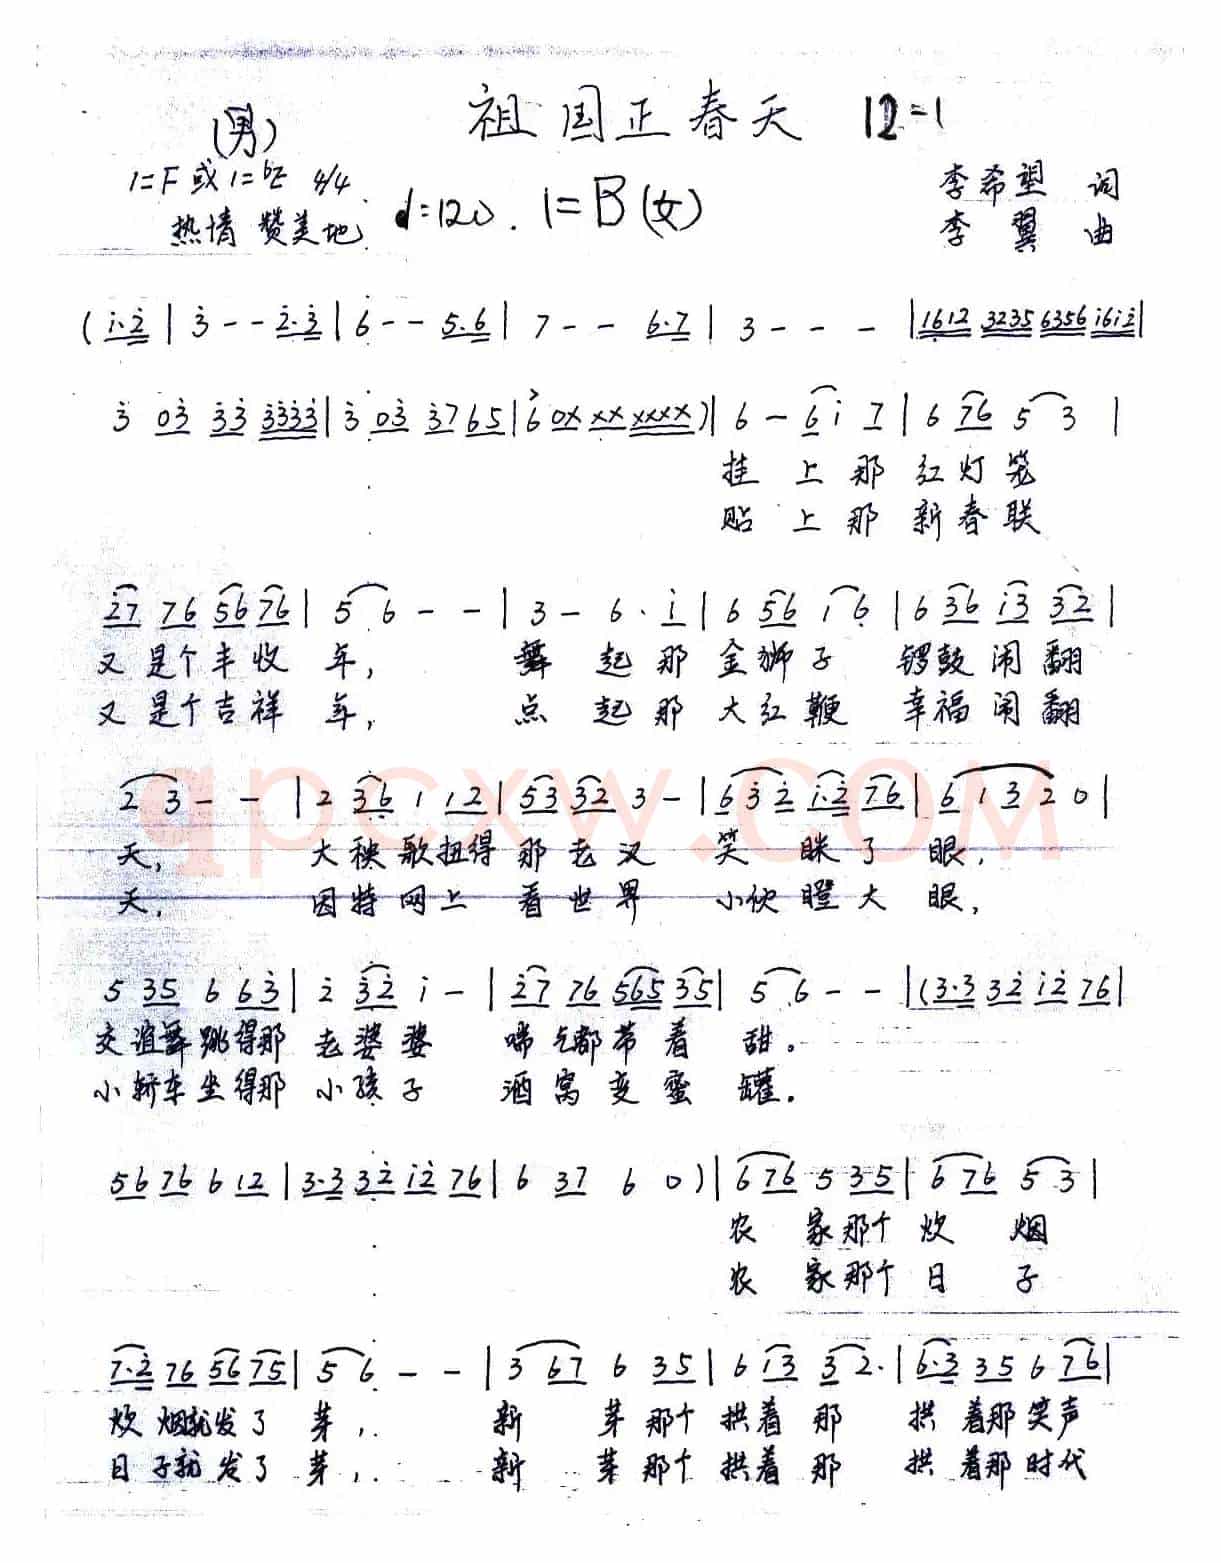 祖国正春天 12=1
(男)
1=F 或 1=bE 4/4
♩=120. 1=B(女)
李希望 词
热情 赞美地
李翼 曲
(i·2̇ | 3̇ - - 2̇·3̇ | 6 - - 5·6 | 7 - - 6·7 | 3 - - - | 1612 3235 6356 i6i2̇ |
3̇ 03̇ 3̇3̇ 3̇3̇3̇3̇ | 3̇ 03̇ 3̇7 65 | 6 0X XX XXXX) | 6 - 6i 7 | 6 76 5 3 |
挂 上 那 红 灯 笼
贴 上 那 新 春 联
2̇7 76 56 76 | 5 6 - - | 3 - 6 · i | 6 56 1 6 | 6 36 i3̇ 3̇2̇ |
又 是个丰收 年, 舞 起 那 金狮子 锣鼓闹翻
又 是个吉祥 年, 点 起 那 大红鞭 幸福闹翻
2 3 - - | 2 36 1 12 | 53 32 3 - | 6 3̇ 2̇ i·2̇ 76 | 6 1 3 2 0 |
天, 大秧歌扭得 那老汉 笑 眯了 眼,
天, 因特网上 看世界 小伙瞪大 眼,
5 35 6 63̇ | 2̇ 3̇2̇ i - | 2̇7 76 565 35 | 5 6 - - | (3·3 32̇ i2̇ 76 |
交谊舞跳得那 老婆婆 喘气都带着 甜。
小轿车坐得那 小孩子 酒窝变蜜 罐。
56 76 6 12 | 3·3 32̇ i2̇ 76 | 6 37 6 0) | 6 76 5 35 | 6 76 5 3 |
农 家那个 炊 烟
农 家那个 日 子
7·2̇ 76 56 75 | 5 6 - - | 3 67 6 35 | 6 i3̇ 3̇ 2· | 6·3 35 6 76 |
炊 烟就发了 芽, 新 芽那个 拱着 那 拱 着那笑声
日 子就发了 芽, 新 芽那个 拱着 那 拱 着那时代
qpcxw.com